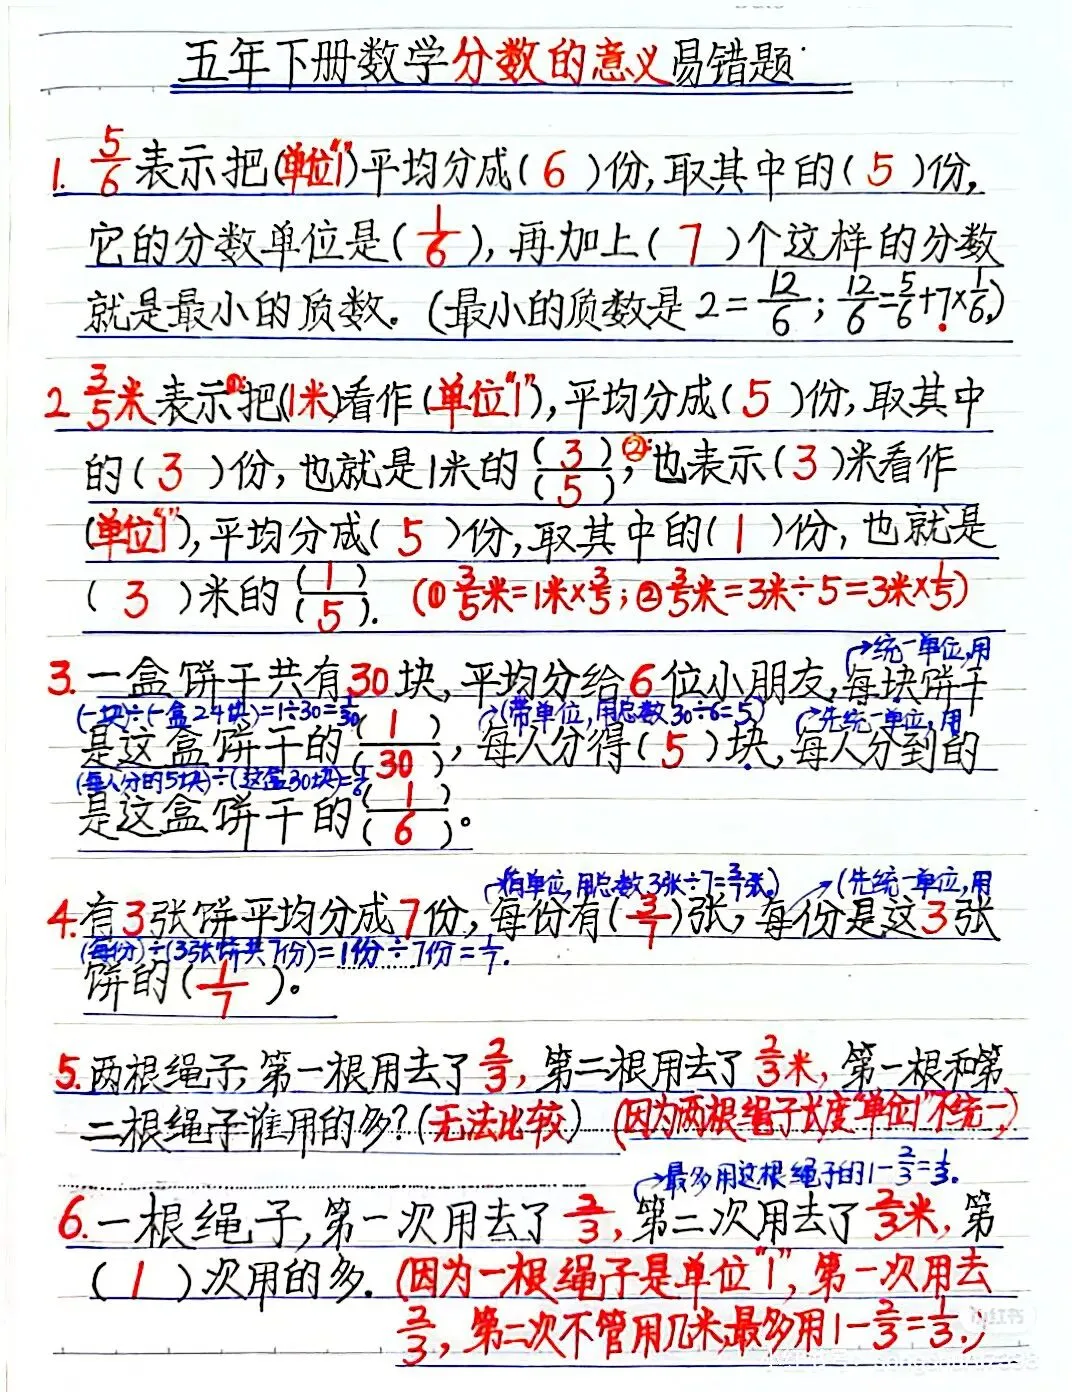 五年下册数学分数的意义易错题
1. 5/6 表示把(单位"1")平均分成( 6 )份,取其中的( 5 )份,
它的分数单位是( 1/6 ),再加上( 7 )个这样的分数
就是最小的质数。(最小的质数是2=12/6;12/6=5/6+7×1/6)
2 3/5米表示①:把(1米)看作(单位"1"),平均分成( 5 )份,取其中
的( 3 )份,也就是1米的(3)/(5),②:也表示( 3 )米看作
(单位"1"),平均分成( 5 )份,取其中的( 1 )份,也就是
( 3 )米的(1)/(5). (①3/5米=1米×3/5;②3/5米=3米÷5=3米×1/5)
→统一单位,用
3.一盒饼干共有30块,平均分给6位小朋友,每块饼干
(一块)÷(一盒24块)=1÷30=1/30 →(带单位,用总数30÷6=5) →先统一单位,用
是这盒饼干的(1)/(30),每人分得( 5 )块,每人分到的
(每人分的5块)÷(这盒30块)=1/6
是这盒饼干的(1)/(6)。
(有单位,用总数3张÷7=3/7张.) →(先统一单位,用
4.有3张饼平均分成7份,每份有(3/7)张,每份是这3张
(每份)÷(3张饼共7份)=1份÷7份=1/7.
饼的(1/7)。
5.两根绳子,第一根用去了2/3,第二根用去了2/3米,第一根和第
二根绳子谁用的多?(无法比较) (因为两根绳子长度"单位1"不统一,)
→最多用这根绳子的1-2/3=1/3.
6.一根绳子,第一次用去了2/3,第二次用去了2/3米,第
( 1 )次用的多.(因为一根绳子是单位"1",第一次用去
2/3,第二次不管用几米,最多用1-2/3=1/3.)
小红书